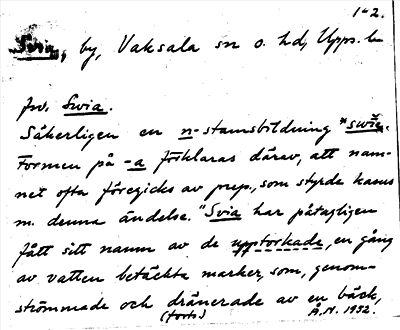 1-2.
Svia, by, Vaksala sn o. hd, Upps. l.
Jvr. Svia.
Säkerligen en n-stamsbildning *swia.
Formen på -a förklaras därav, att nam-
net ofta föregicks av prep., som styrde kasus
m. denna ändelse. "Svia har påtagligen
fått sitt namn av de upptorkade, en gång
av vatten betäckta marker, som, genom-
strömmade och dränerade av en bäck,
(forts.) Å.N. 1932.